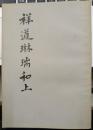 祥道琳瑞和上